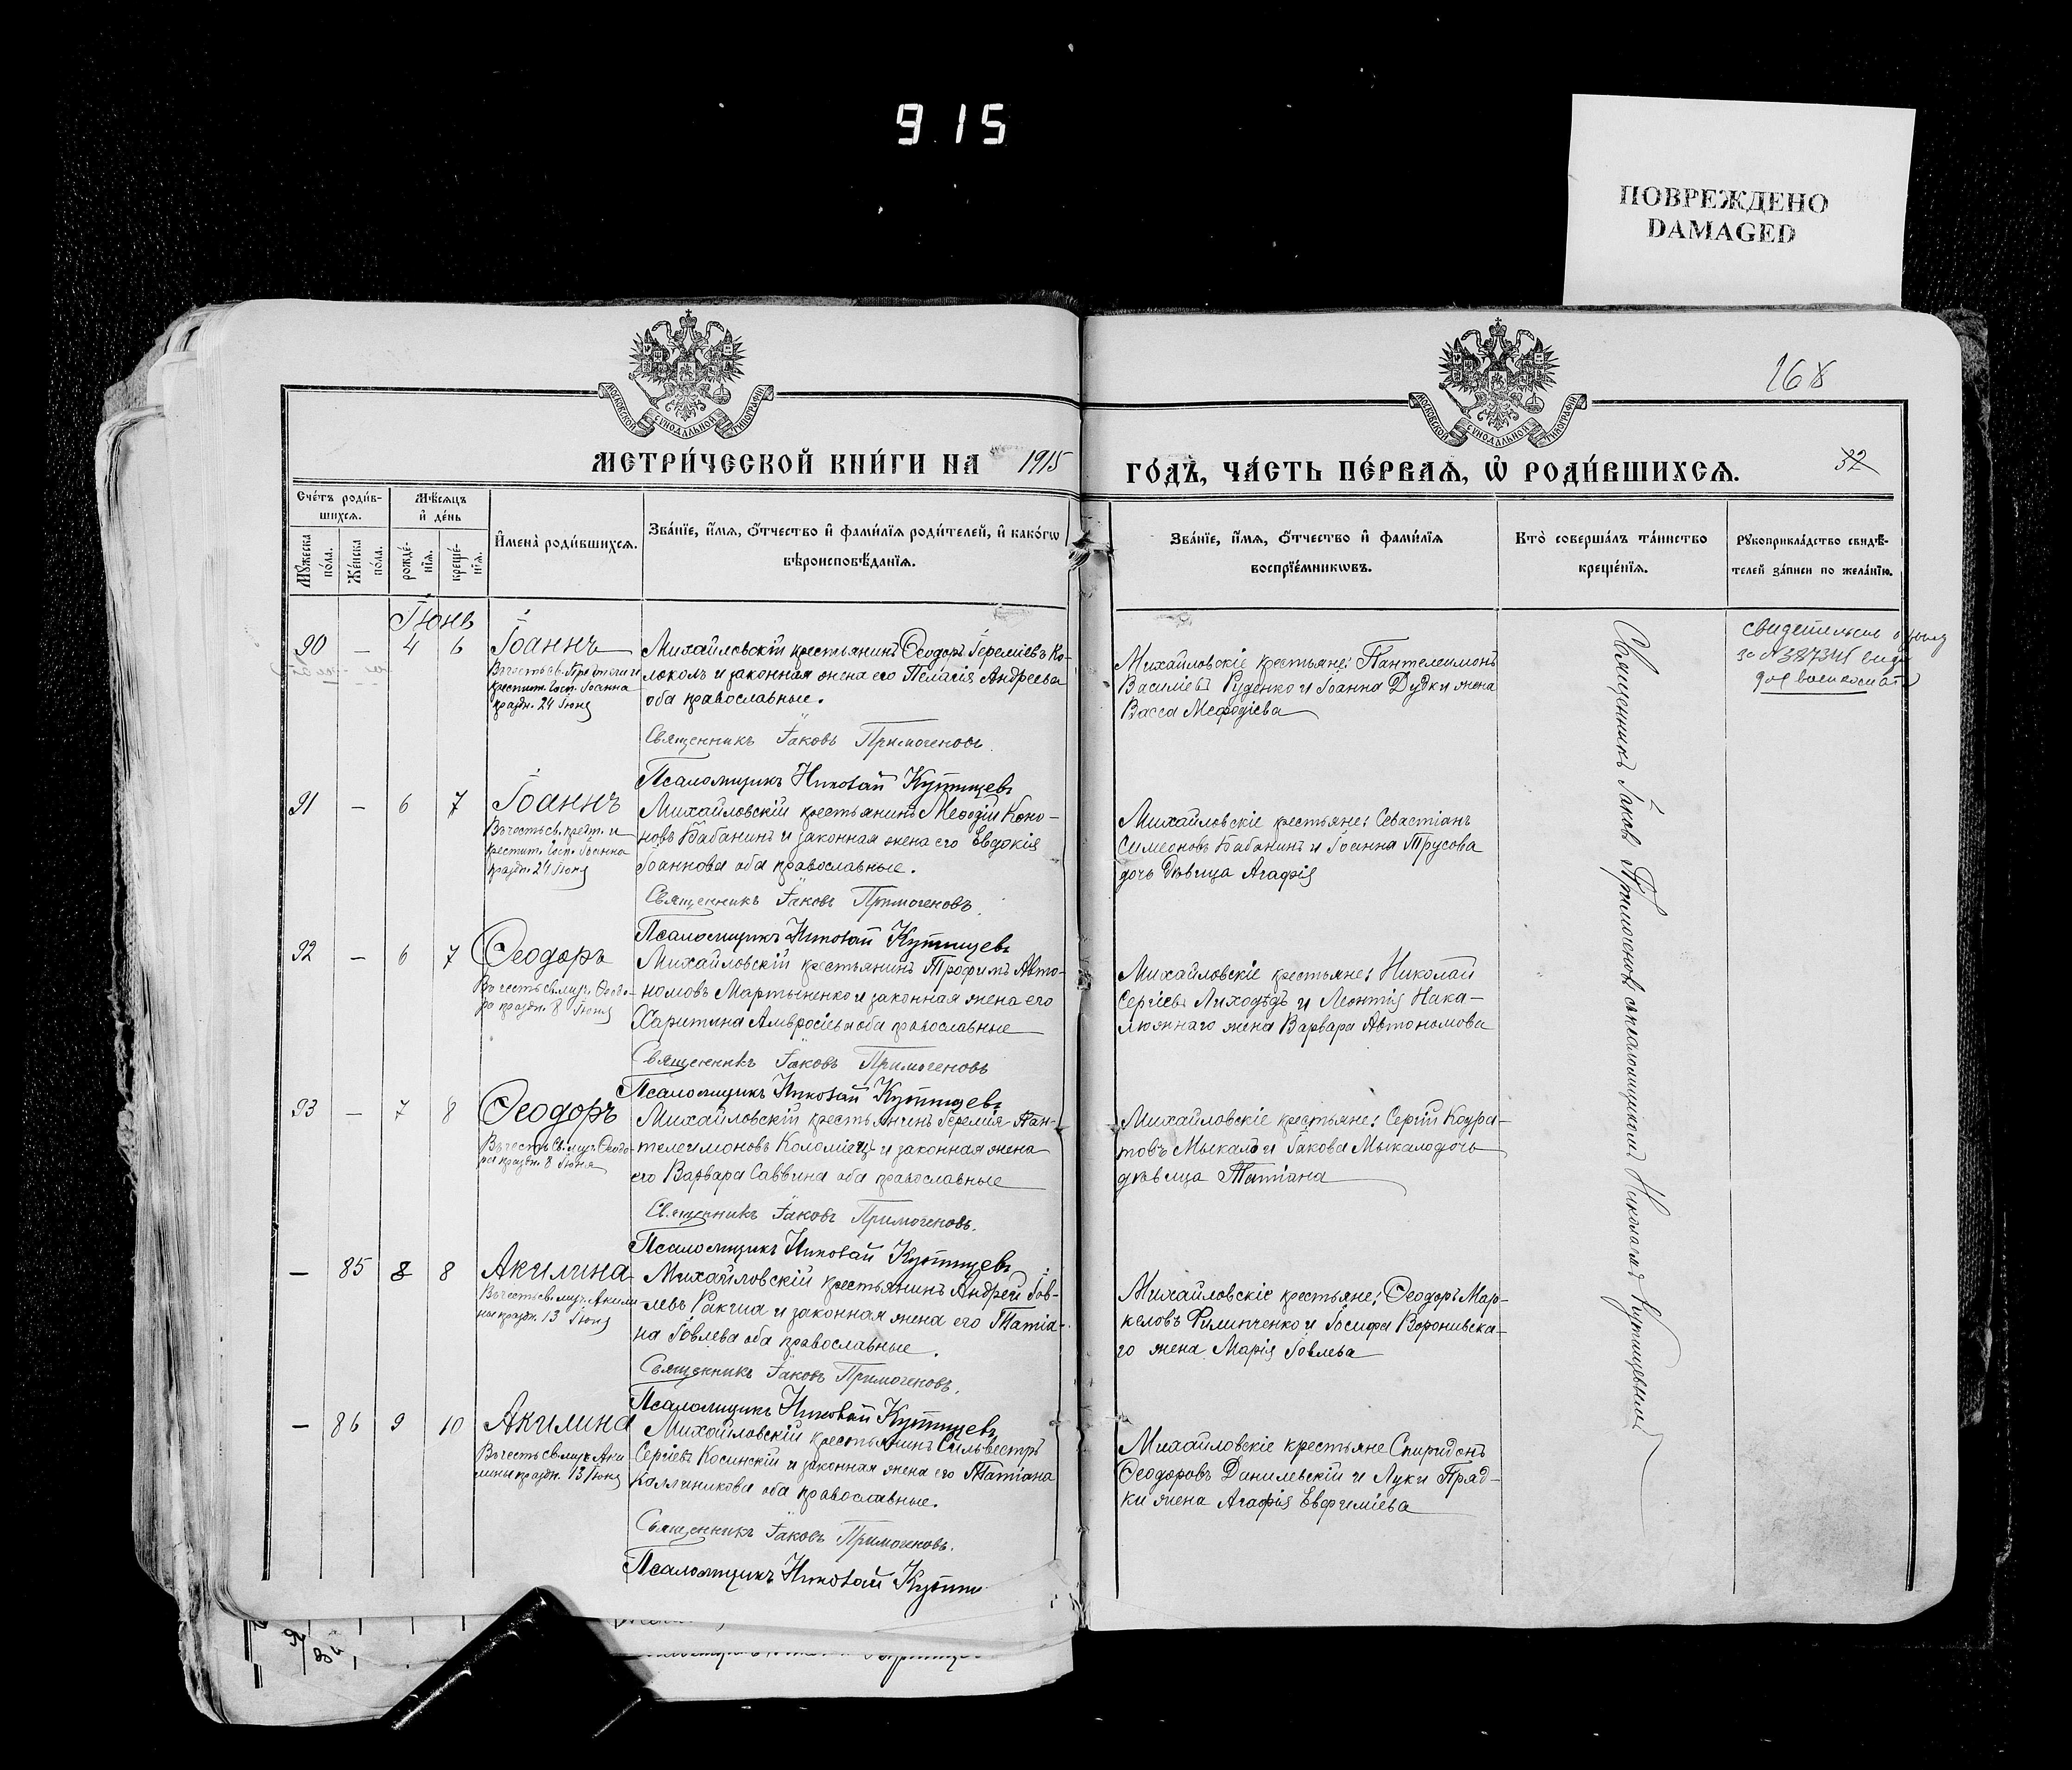 9 15
ПОВРЕЖДЕНО
DAMAGED
МОСКОВСКОЙ СУНОДАЛЬНОЙ ТИПОГРАФИИ
МОСКОВСКОЙ СУНОДАЛЬНОЙ ТИПОГРАФИИ
168
МЕТРИ́ЧЕСКОЙ КНИ́ГИ НА 1915
ГО́ДЪ, ЧА́СТЬ ПЕ́РВАѦ, Ѡ РОДИ́ВШИХСѦ.
32
Сче́тъ роди́в-
шихсѧ.
Мѣ́сяцъ
и҆ де́нь
Мꙋ́жеска
по́ла.
Же́нска
по́ла.
рожде́-
нїѧ.
креще́-
нїѧ.
И҆мена̀ роди́вшихсѧ.
Зва́нїе, и҆́мѧ, ѻ҆́тчество и҆ фами́лїѧ роди́телей, и҆ како́гѡ
вѣроисповѣ́данїѧ.
Зва́нїе, и҆́мѧ, ѻ҆́тчество и҆ фами́лїѧ
воспрїе́мникѡвъ.
Кто̀ соверша́лъ та́инство
креще́нїѧ.
Рꙋкоприкла́дство свидѣ́-
телей за́писи по жела́нїю.
Іюнь
90 — 4 6 Іоаннъ
Въ честь св. Предтечи и
крестит. Госп. Іоанна
праздн. 24 Іюня
Михайловскій крестьянинъ Ѳеодоръ Іереміевъ Ко-
локолъ и законная жена его Пелагія Андреева
оба православные.
Священникъ Іаковъ Примогеновъ.
Псаломщикъ Николай Кутищевъ
Михайловскіе крестьяне: Пантелеимонъ
Василіевъ Руденко и Іоанна Дудки жена
Васса Меѳодіева
Свидетельство
за № 387345
91 — 6 7 Іоаннъ
Въ честь св. предт. и
крестит. Госп. Іоанна
праздн. 24 Іюня
Михайловскій крестьянинъ Меѳодій Коно-
новъ Бабанинъ и законная жена его Евдокія
Іоаннова оба православные.
Священникъ Іаковъ Примогеновъ.
Псаломщикъ Николай Кутищевъ
Михайловскіе крестьяне: Севастіанъ
Симеоновъ Бабанинъ и Іоанна Трусова
дочь дѣвица Агафія
92 — 6 7 Ѳеодоръ
Въ честь св. муч. Ѳеодо-
ра праздн. 8 Іюня
Михайловскій крестьянинъ Трофимъ Авто-
номовъ Мартыненко и законная жена его
Харитина Амвросіева оба православные
Священникъ Іаковъ Примогеновъ
Псаломщикъ Николай Кутищевъ
Михайловскіе крестьяне: Николай
Сергіевъ Лиходѣдъ и Леонтія Нака-
люжнаго жена Варвара Автономова
93 — 7 8 Ѳеодоръ
Въ честь св. муч. Ѳеодо-
ра праздн. 8 Іюня
Михайловскій крестьянинъ Іеремія Пан-
телеимоновъ Коломіецъ и законная жена
его Варвара Саввина оба православные
Священникъ Іаковъ Примогеновъ.
Псаломщикъ Николай Кутищевъ
Михайловскіе крестьяне: Сергій Кодра-
товъ Мыкало и Іакова Мыкало дочь
дѣвица Татіана
— 85 8 8 Акилина
Въ честь св. муч. Акили-
ны праздн. 13 Іюня
Михайловскій крестьянинъ Андрей Іов-
левъ Ракша и законная жена его Татіа-
на Іовлева оба православные.
Священникъ Іаковъ Примогеновъ.
Псаломщикъ Николай Кутищевъ
Михайловскіе крестьяне: Ѳеодоръ Мар-
келовъ Филипченко и Іосифа Воронивска-
го жена Марія Іовлева
— 86 9 10 Акилина
Въ честь св. муч. Аки
лины праздн. 13 Іюня
Михайловскій крестьянинъ Сильвестръ
Сергіевъ Косинскій и законная жена его Татіана
Каллиникова оба православные.
Священникъ Іаковъ Примогеновъ.
Псаломщикъ Николай Кутищ
Михайловскіе крестьяне Спиридонъ
Ѳеодоровъ Данилевскій и Луки Пряд-
ки жена Агафія Евфиміева
Священникъ Іаковъ Примогеновъ съ псаломщикомъ Николаемъ Кутищевымъ